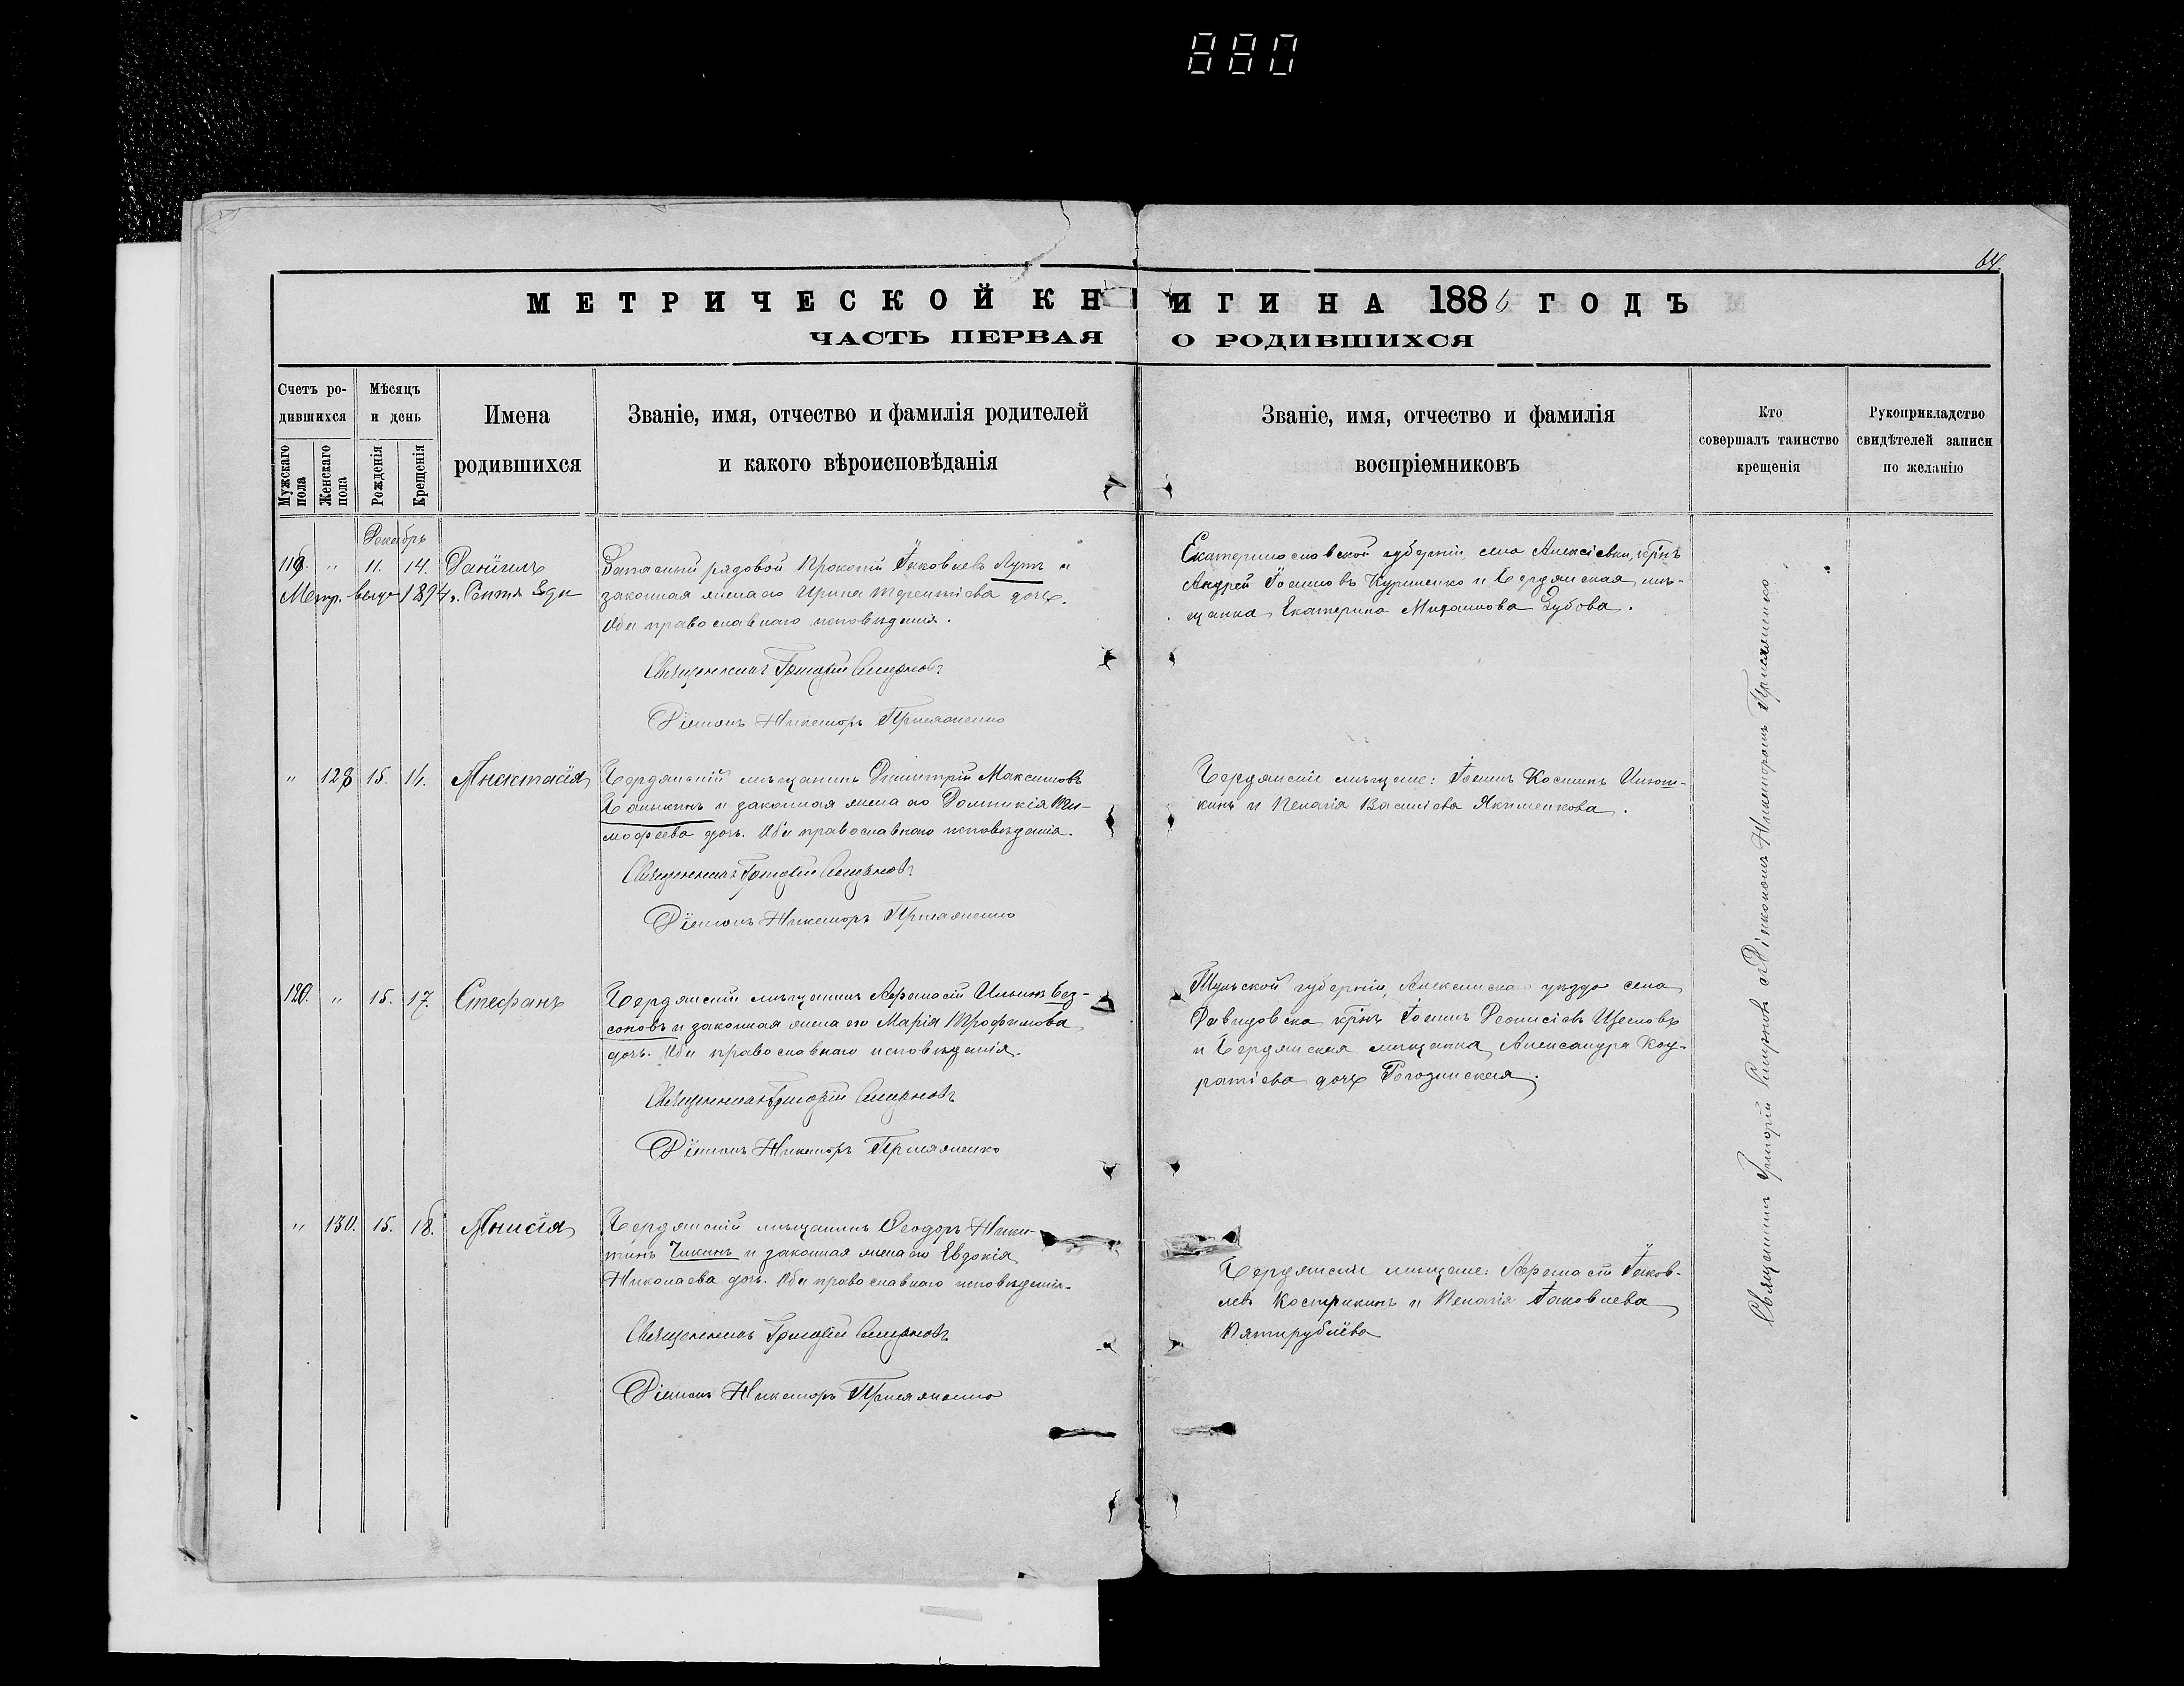 880
64.
МЕТРИЧЕСКОЙ КНИГИ НА 1886 ГОДЪ
ЧАСТЬ ПЕРВАЯ О РОДИВШИХСЯ
Счетъ ро-
дившихся
Мужскаго пола
Женскаго пола
Мѣсяцъ
и день
Рожденія
Крещенія
Имена
родившихся
Званіе, имя, отчество и фамилія родителей
и какого вѣроисповѣданія
Званіе, имя, отчество и фамилія
воспріемниковъ
Кто
совершалъ таинство
крещенія
Рукоприкладство
свидѣтелей записи
по желанію
Декабрь
119. " 11. 14. Даніилъ
Метр. выда 1894 г. Сентя
Запасный рядовой Прокопій Іаковлевъ и
законная жена его Ирина Терентіева дочь.
Оба православнаго исповѣданія.
Священникъ Григорій Смирновъ
Діаконъ Никаноръ Присяженко
Екатеринославской губерніи, села Алексіевки, крѣнъ
Андрей Іоанновъ Куриленко и Бердянская мѣ-
щанка Екатерина Михаилова Зубова.
" 128 15. 14. Анастасія
Бердянскій мѣщанинъ Димитрій Максимовъ
и законная жена его Домникія Ти-
мофеева дочь. Оба православнаго исповѣданія.
Священникъ Григорій Смирновъ
Діаконъ Никаноръ Присяженко
Бердянскіе мѣщане: Іоаннъ Косминъ
кинъ и Пелагія Василіева Якименкова.
120. " 15. 17. Стефанъ
Бердянскій мѣщанинъ Афанасій Ильинъ Без-
соновъ и законная жена его Марія Трофимова
дочь. Оба православнаго исповѣданія.
Священникъ Григорій Смирновъ
Діаконъ Никаноръ Присяженко
Тульской губерніи, Алексинскаго уѣзда села
Давидовска крнъ Іоаннъ Діонисіевъ
и Бердянская мѣщанка Александра Код-
ратіева дочь Рогозинская.
" 130. 15. 18. Анисія
Бердянскій мѣщанинъ Феодоръ Ники-
тинъ Чикинъ и законная жена его Евдокія
Николаева дочь. Оба православнаго исповѣданія.
Священникъ Григорій Смирновъ
Діаконъ Никаноръ Присяженко
Бердянскіе мѣщане: Афанасій Іаков-
левъ Кострикинъ и Пелагія Іаковлева
Пятирублёва
Священникъ Григорій Смирновъ съ Діакономъ Никаноромъ Присяженко